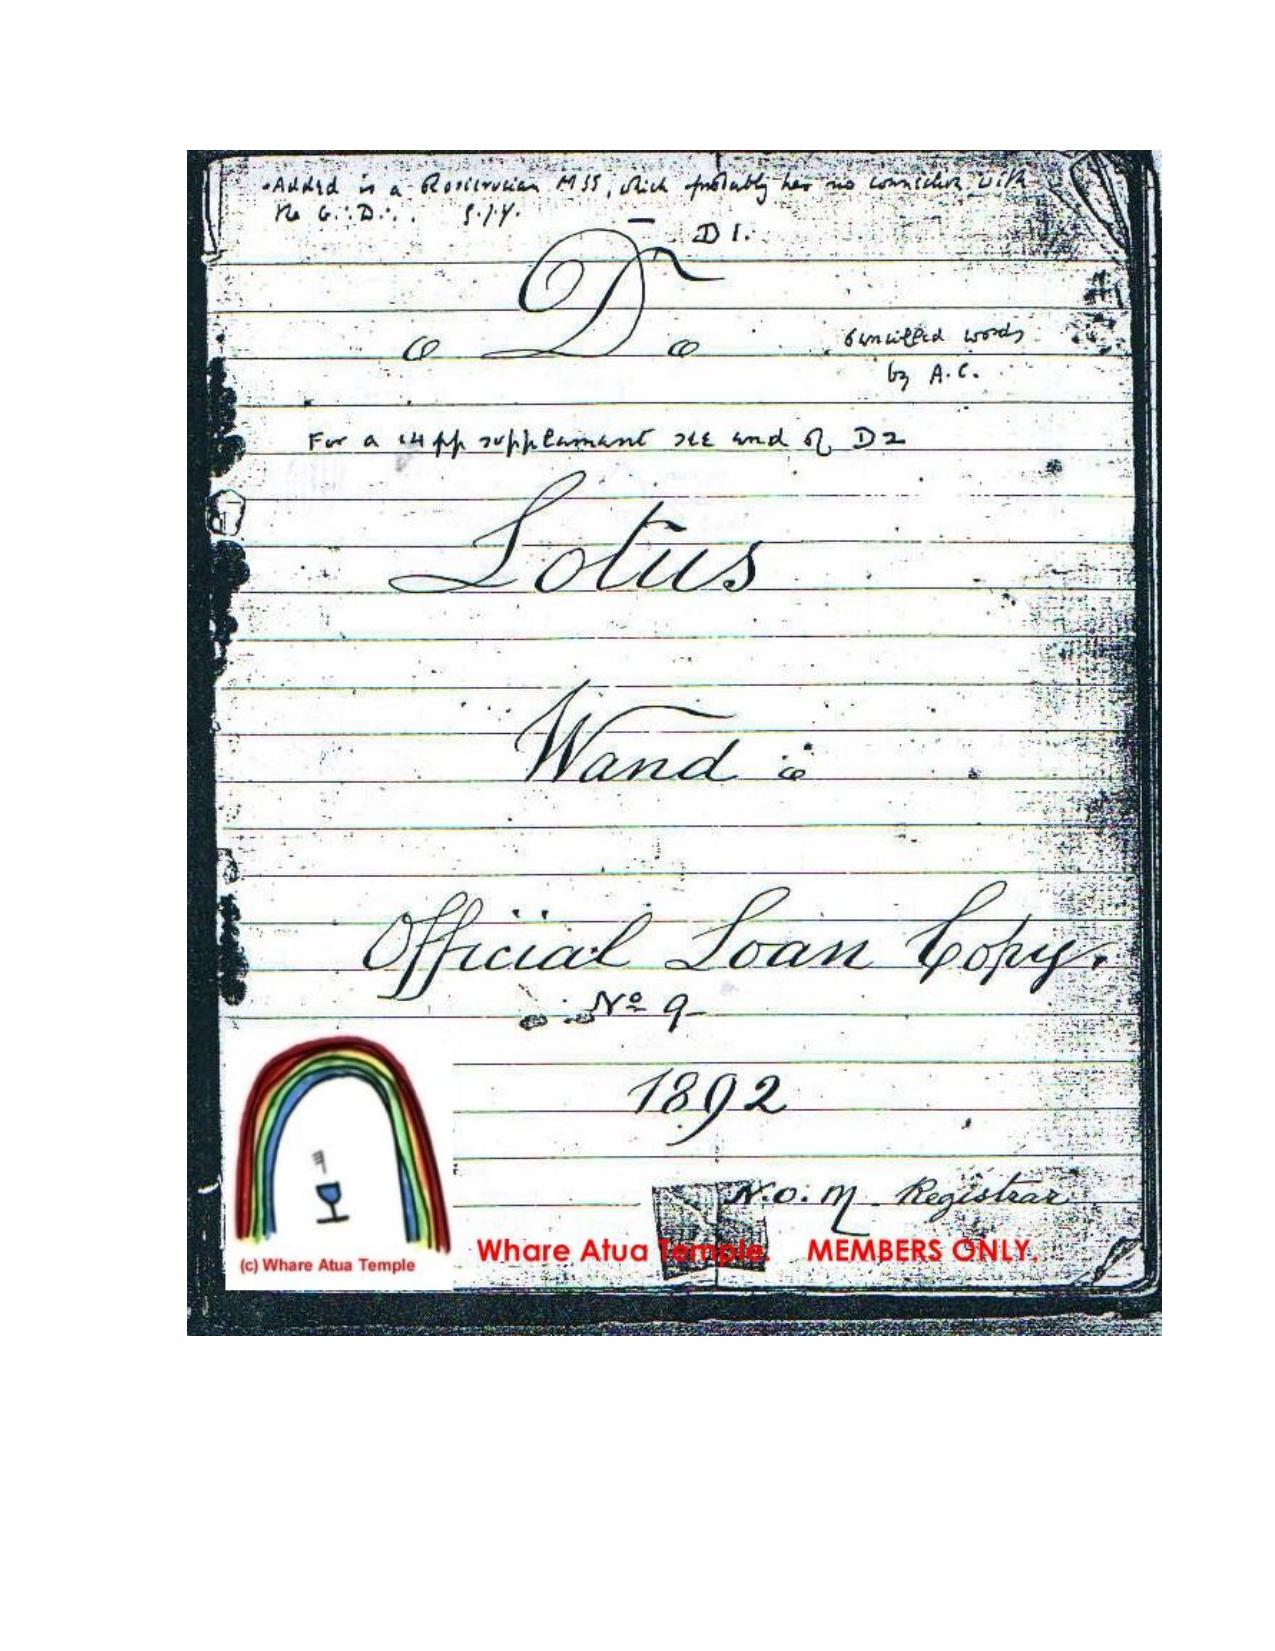 Added is a Rosicrucian MSS, which probably has no connection with
the G∴D∴. G.J.Y.
D1.
D
Pencilled words
by A.C.
For a 14pp supplement see end of D2
Lotus
Wand
Official Loan Copy.
Nº 9
1892
N.O.M. Registrar
Whare Atua Temple. MEMBERS ONLY.
(c) Whare Atua Temple